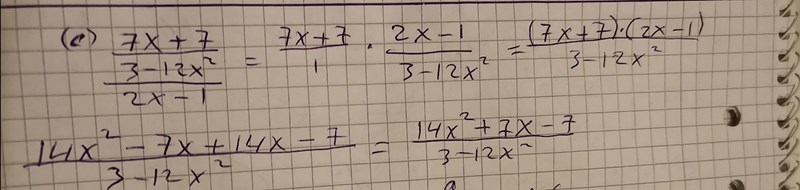 (c) \frac{7x+7}{\frac{3-12x^2}{2x-1}} = \frac{7x+7}{1} \cdot \frac{2x-1}{3-12x^2} = \frac{(7x+7) \cdot (2x-1)}{3-12x^2}
\frac{14x^2-7x+14x-7}{3-12x^2} = \frac{14x^2+7x-7}{3-12x^2}